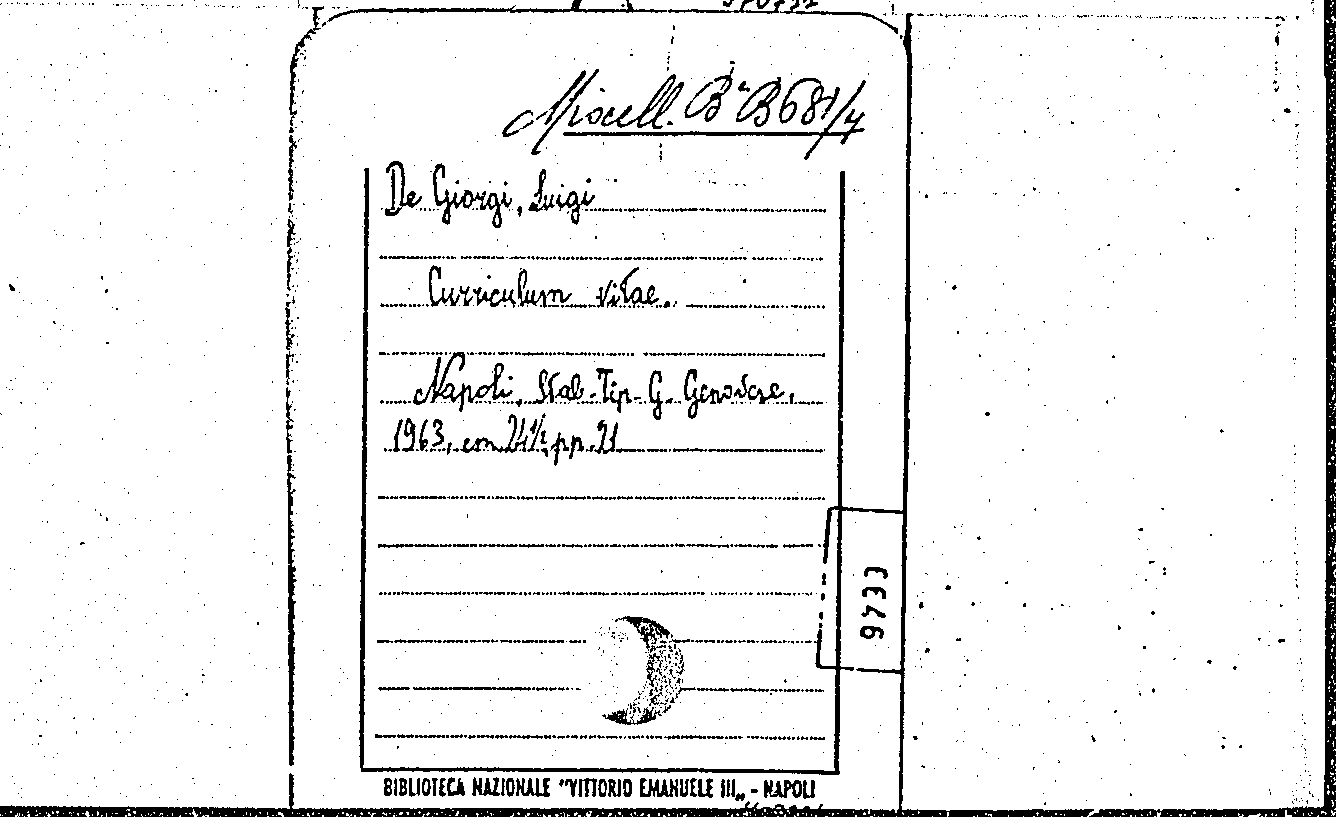 Miscell. Bª B681/4
De Giorgi, Luigi
Curriculum vitae.
Napoli, Stab. Tip. G. Genovese,
1963, cm. 24½, pp. 21
9733
BIBLIOTECA NAZIONALE "VITTORIO EMANUELE III„ - NAPOLI